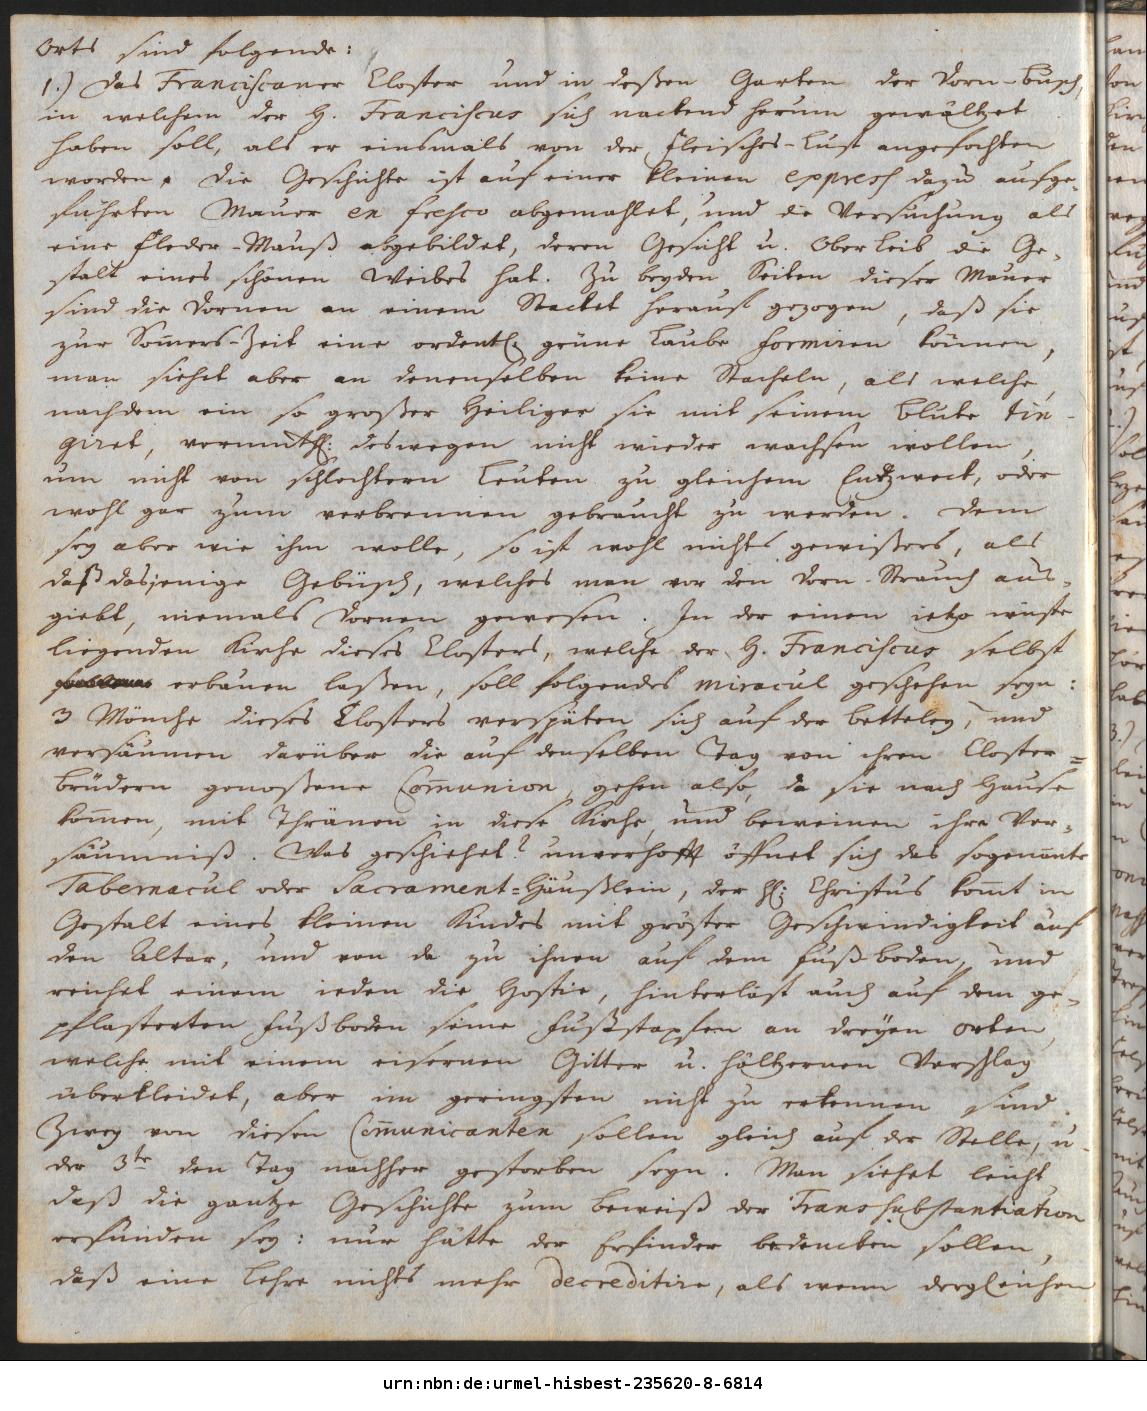 Orts sind folgende:
1.) Das Franciscaner Closter und in deßen Garten der Dorn-Busch,
in welchem der H. Franciscus sich nackend herum gewältzet
haben soll, als er einsmals von der Fleisches-Lust angefochten
worden. Die Geschichte ist auf einer kleinen express dazu aufge-
führten Mauer en fresco abgemahlet, und die Versuchung als
eine Fleder-Mauß abgebildet, deren Gesicht u. Ober Leib die Ge-
stalt eines schönen Weibes hat. Zu beyden Seiten dieser Mauer
sind die Dornen an einem Stacket herauf gezogen, daß sie
zur Som̄ers-Zeit eine ordentl. grüne Laube formiren können,
man siehet aber an denenselben keine Stacheln, als welche,
nachdem ein so großer Heiliger sie mit seinem Blute tin-
giret, vermuthl: deswegen nicht wieder wachsen wollen,
um nicht von schlechtern Leuten zu gleichem Endzweck, oder
wohl gar zum verbrennen gebraucht zu werden. Dem
sey aber wie ihm wolle, so ist wohl nichts gewißers, als
daß dasjenige Gebüsch, welches man vor den Dorn-Strauch aus-
giebt, niemals Dornen gewesen. In der einen ietzo wüste
liegenden Kirche dieses Closters, welche der H. Franciscus selbst
erbauen laßen, soll folgendes miracul geschehen seyn:
3 Mönche dieses Closters verspäten sich auf der Betteley, und
versäumen darüber die auf denselben Tag von ihren Closter=
brüdern genoßene Com̄union, gehen also, da sie nach Hause
kom̄en, mit Thränen in diese Kirche, und beweinen ihre Ver-
säumniß. Was geschiehet? unverhofft öffnet sich das sogenannte
Tabernacul oder Sacrament=Häußlein, der Hl: Christus kom̄t in
Gestalt eines kleinen Kindes mit gröster Geschwindigkeit auf
den Altar, und von da zu ihnen auf dem Fußboden, und
reichet einem ieden die Hostie, hinterläst auch auf dem ge-
pflasterten Fußboden seine Fußstapfen an dreyen Orten,
welche mit einem eisernen Gitter u. höltzernen Verschlag
uberkleidet, aber im geringsten nicht zu erkennen sind.
Zwey von diesen Com̄unicanten sollen gleich auf der Stelle, u.
der 3te den Tag nachher gestorben seyn. Man siehet leicht
daß die gantze Geschichte zum Beweiß der Transsubstantiation
erfunden sey: nur hätte der Erfinder bedencken sollen,
daß eine Lehre nichts mehr decreditire, als wenn dergleichen
urn:nbn:de:urmel-hisbest-235620-8-6814